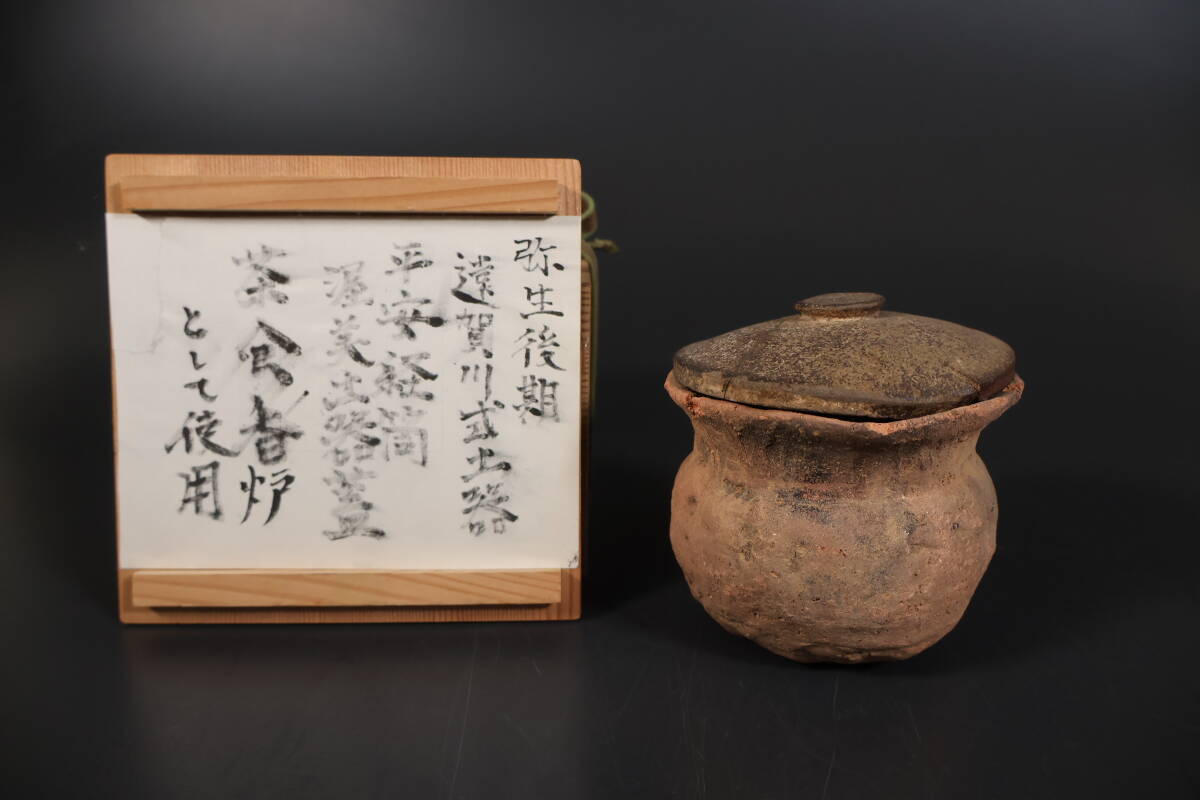 弥生後期
遠賀川式土器
平安経筒
渥美土器蓋
茶会香炉
として使用